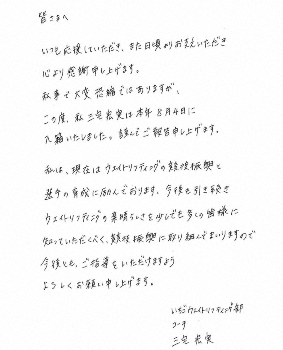 皆さまへ
いつも応援していただき、また日頃よりお支えいただき
心より感謝申し上げます。
私事で大変恐縮ではありますが、
この度、私 三宅宏実は本年8月4日に
入籍いたしました。謹んでご報告申し上げます。
私は、現在はウエイトリフティングの競技振興と
選手の育成に励んでおります。今後も引き続き
ウエイトリフティングの素晴らしさを少しでも多くの皆様に
知っていただくべく、競技振興に取り組んでまいりますので
今後とも、ご指導をいただけますよう
よろしくお願い申し上げます。
いちごウエイトリフティング部
コーチ
三宅宏実